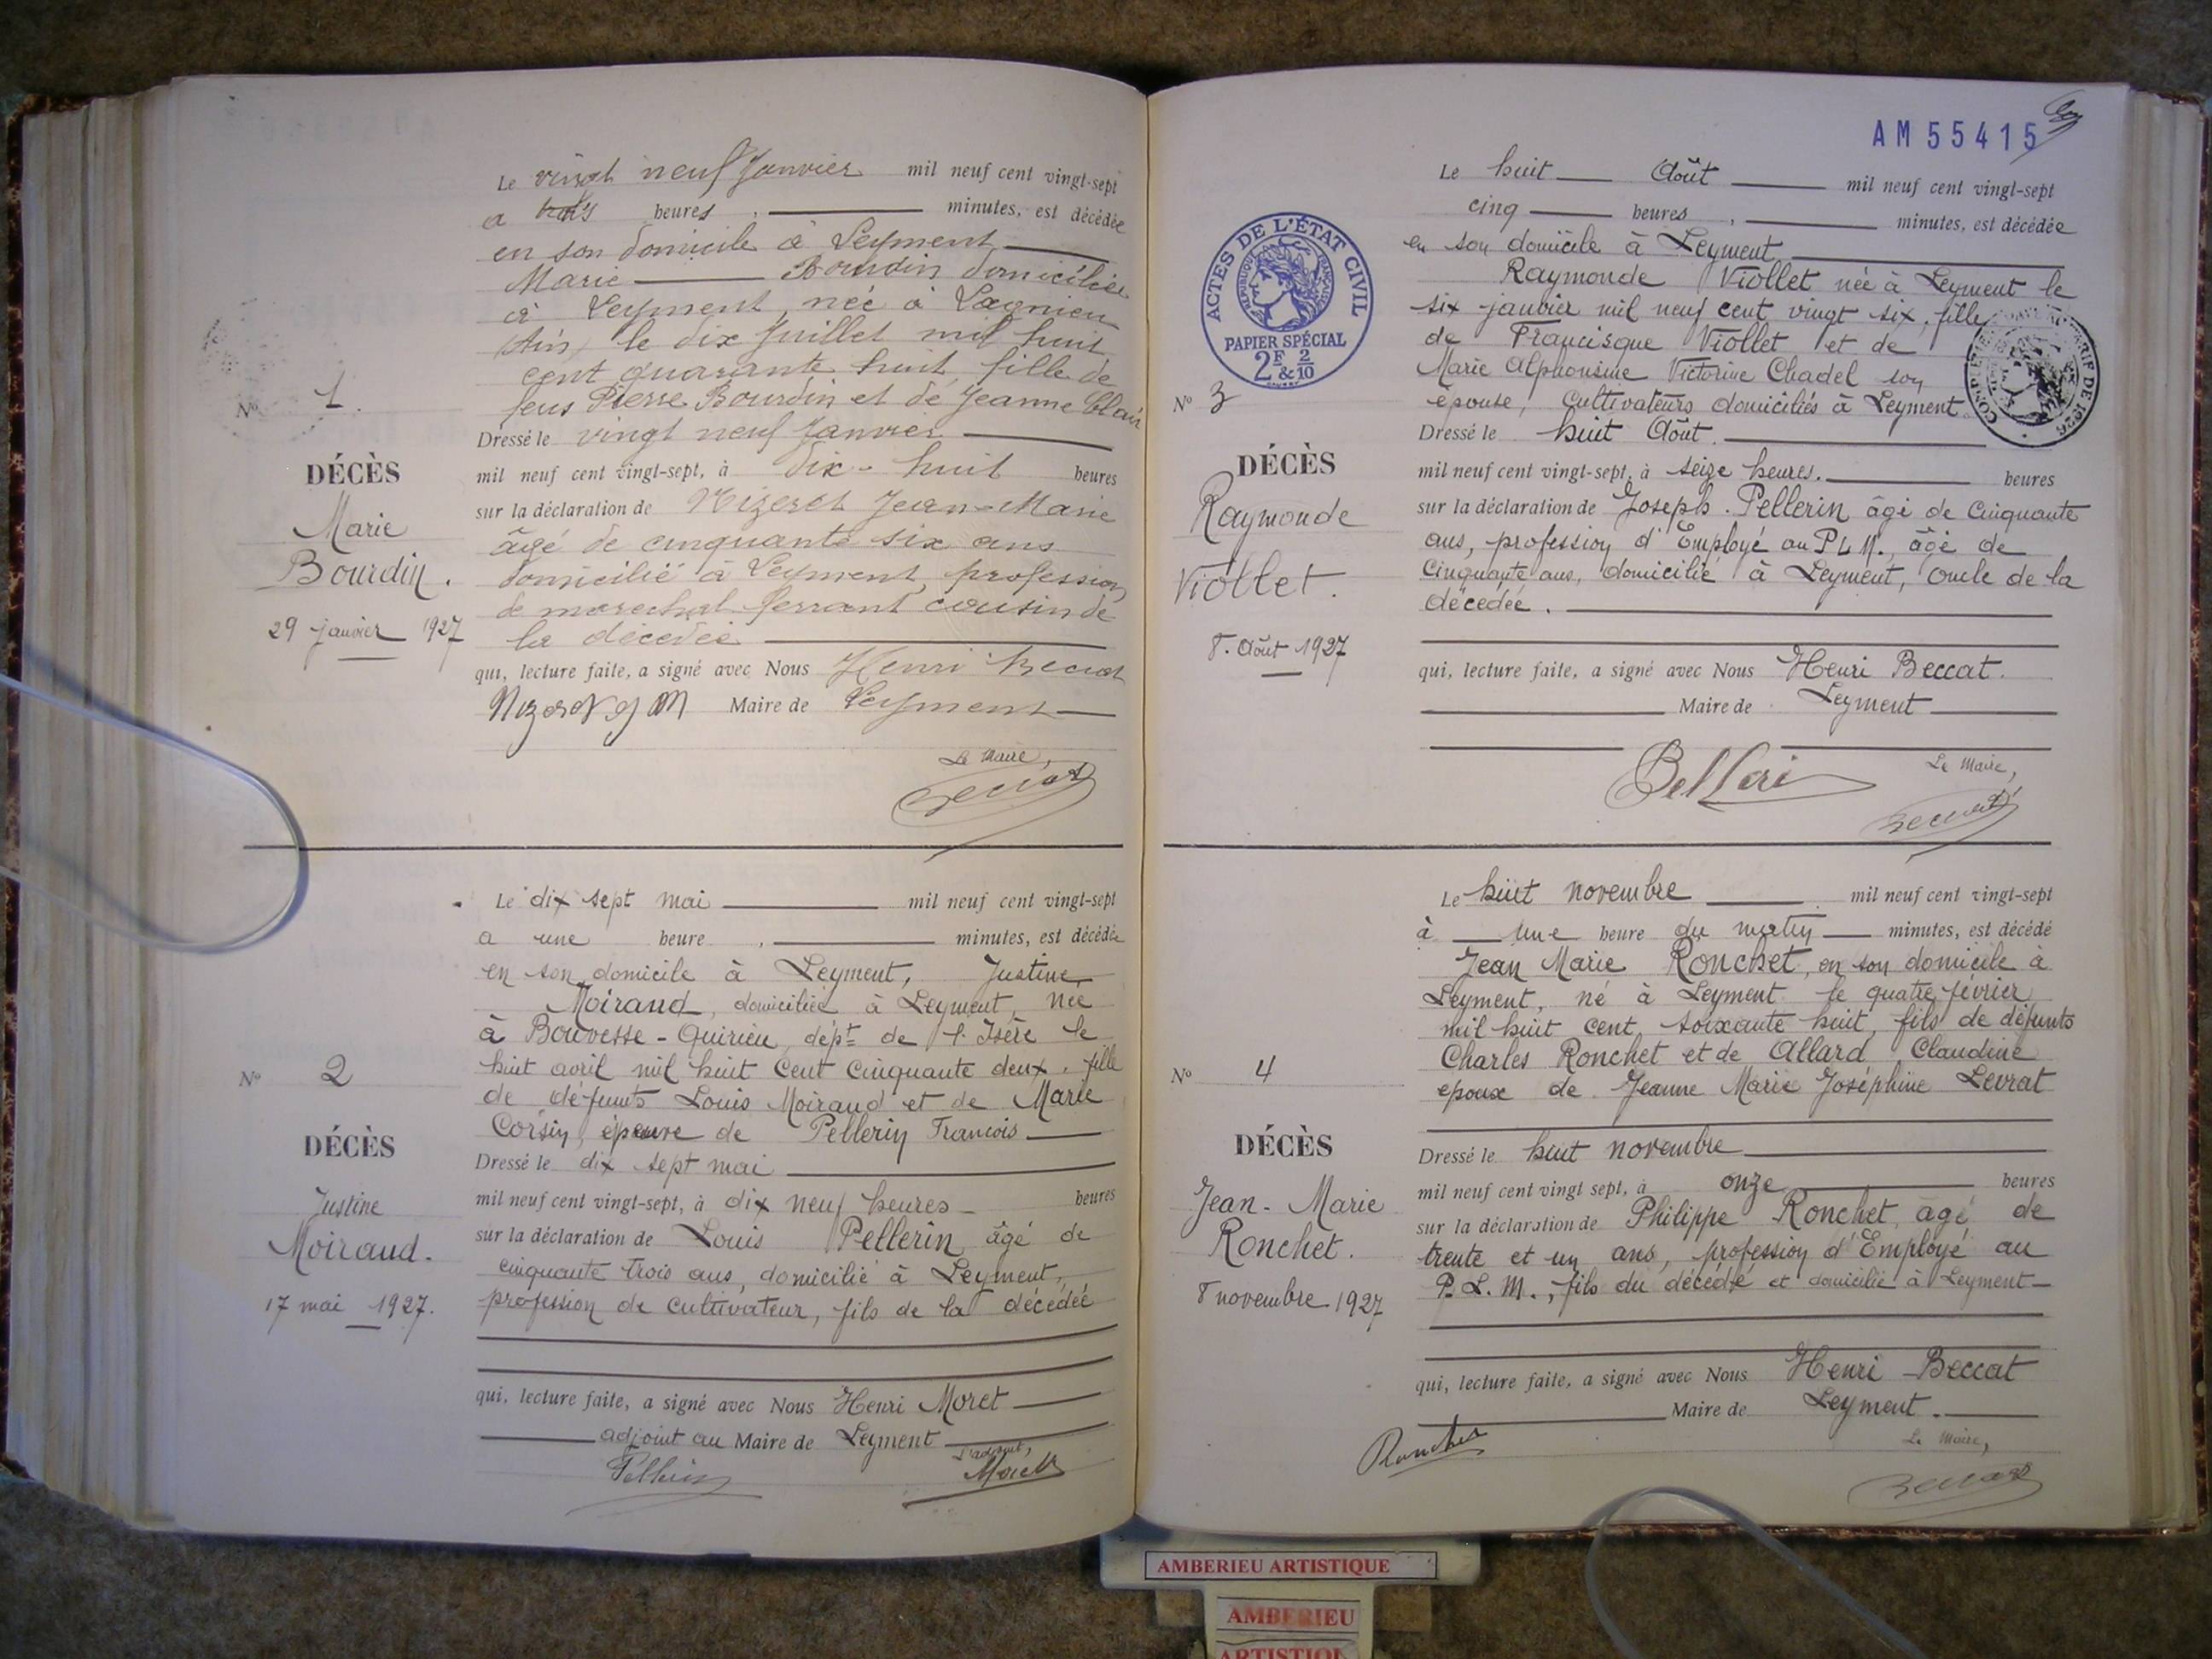 Le vingt neuf Janvier mil neuf cent vingt-sept
a trois heures , minutes, est décédée
en son domicile à Leyment
Marie Bourdin domiciliée
à Leyment, née à Lagnieu
(Ain) le dix Juillet mil huit
cent quarante huit, fille de
feus Pierre Bourdin et de Jeanne Clair
Nº 1.
DÉCÈS
Marie
Bourdin.
29 janvier 1927
Dressé le vingt neuf Janvier
mil neuf cent vingt-sept, à dix-huit heures
sur la déclaration de Nizeret Jean-Marie
âgé de cinquante six ans
domicilié à Leyment, profession
de marechal ferrant cousin de
la décédée
qui, lecture faite, a signé avec Nous Henri Beccat
Nizeret J M Maire de Leyment
Le Maire,
Beccat
Le dix sept mai mil neuf cent vingt-sept
a une heure , minutes, est décédée
en son domicile à Leyment, Justine
Moiraud, domiciliée à Leyment, née
à Bouvesse-Quirieu, dépt de l'Isère le
huit avril mil huit cent cinquante deux, fille
de défunts Louis Moiraud et de Marie
Corsin, épouse de Pellerin François
Nº 2
DÉCÈS
Justine
Moiraud.
17 mai 1927.
Dressé le dix sept mai
mil neuf cent vingt-sept, à dix neuf heures heures
sur la déclaration de Louis Pellerin âgé de
cinquante trois ans, domicilié à Leyment,
profession de cultivateur, fils de la décédée
qui, lecture faite, a signé avec Nous Henri Moret
adjoint au Maire de Leyment
L'adjoint,
Pellerin Moret
AM 55415
Le huit Août mil neuf cent vingt-sept
cinq heures , minutes, est décédée
en son domicile à Leyment
Raymonde Viollet née à Leyment le
six janvier mil neuf cent vingt six, fille
de Francisque Viollet et de
Marie Alphonsine Victorine Chadel son
épouse, cultivateurs domiciliés à Leyment
ACTES DE L'ÉTAT CIVIL
RÉPUBLIQUE FRANÇAISE
PAPIER SPÉCIAL
2F & 2/10
Nº 3
DÉCÈS
Raymonde
Viollet.
8. Août 1927
Dressé le huit Août.
mil neuf cent vingt-sept, à seize heures. heures
sur la déclaration de Joseph. Pellerin âgé de cinquante
ans, profession d'Employé au P L M., âgé de
cinquante ans, domicilié à Leyment, oncle de la
décédée.
qui, lecture faite, a signé avec Nous Henri Beccat.
Maire de Leyment
Le Maire,
Beccat
Le huit novembre mil neuf cent vingt-sept
à une heure du matin minutes, est décédé
Jean Marie Ronchet, en son domicile à
Leyment, né à Leyment le quatre février
mil huit cent soixante huit, fils de défunts
Charles Ronchet et de Allard Claudine
epoux de Jeanne Marie Joséphine Levrat
Nº 4
DÉCÈS
Jean-Marie
Ronchet.
8 novembre 1927
Dressé le huit novembre
mil neuf cent vingt sept, à onze heures
sur la déclaration de Philippe Ronchet, âgé de
trente et un ans, profession d'Employé au
P. L. M., fils du décédé et domicilié à Leyment
qui, lecture faite, a signé avec Nous Henri Beccat
Maire de Leyment.
Le Maire,
Ronchet
Beccat
AMBERIEU ARTISTIQUE
AMBERIEU
ARTISTIQUE